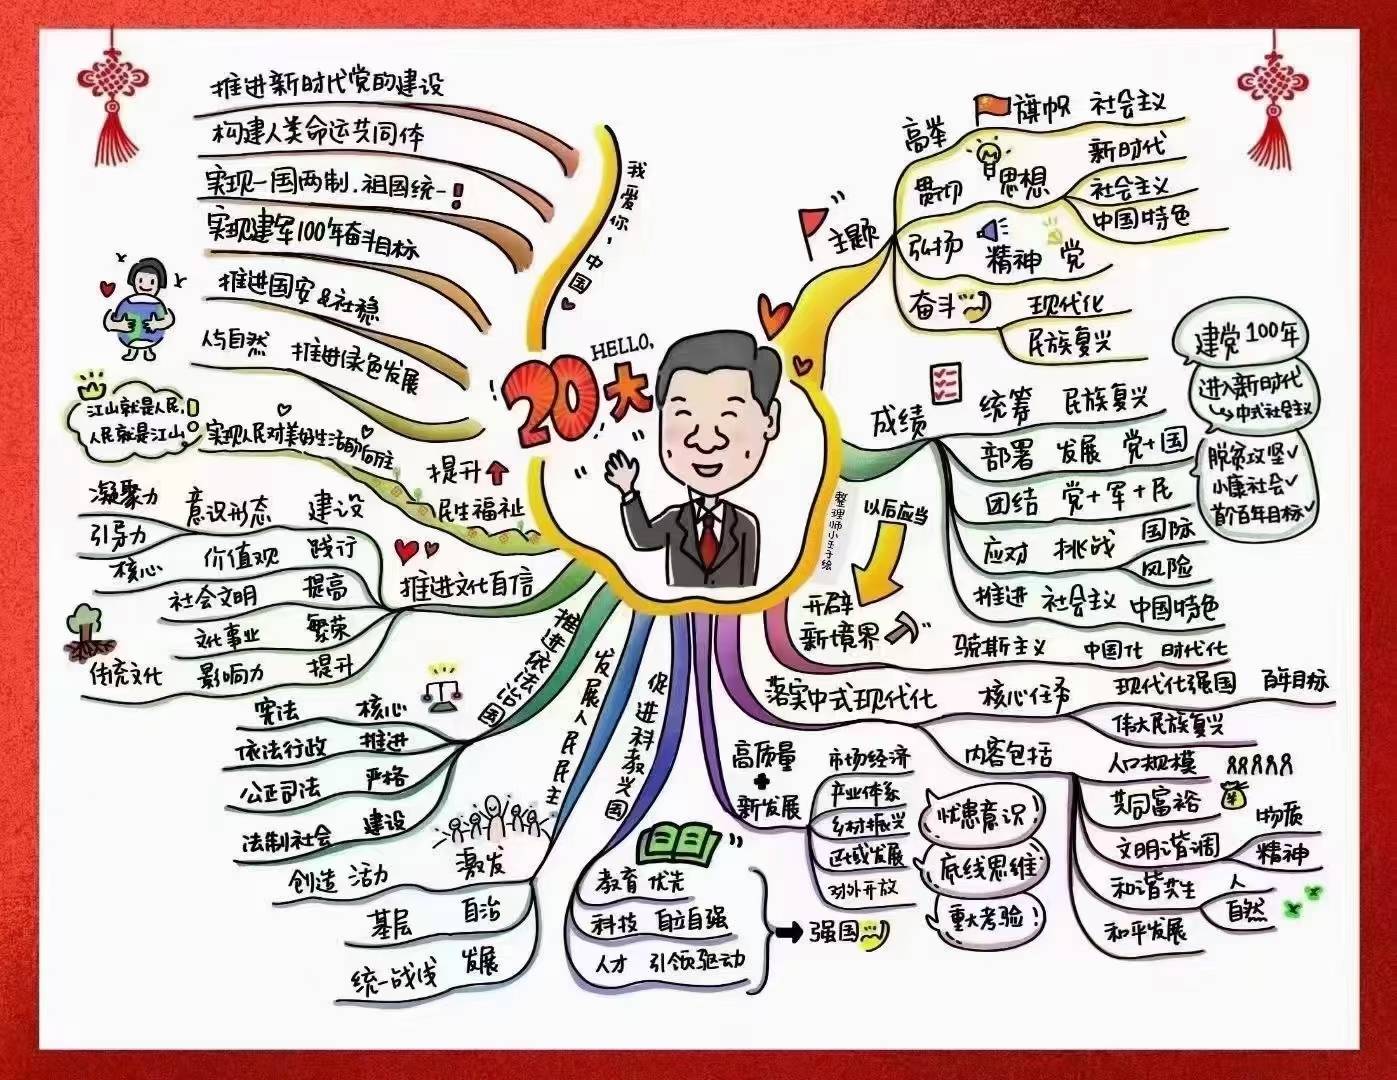 HELLO,
20大
我爱你，中国
整理师小王子绘
主题
高举 旗帜 社会主义
贯彻 思想
新时代
社会主义
中国特色
弘扬 精神 党
奋斗
现代化
民族复兴
成绩
统筹 民族复兴
部署 发展 党+国
团结 党+军+民
应对 挑战
国际
风险
推进 社会主义 中国特色
建党100年
进入新时代
中式社会主义
脱贫攻坚✓
小康社会✓
首个百年目标✓
以后应当
开辟
新境界
马克斯主义 中国化 时代化
落实中式现代化
核心任务
现代化强国 百年目标
伟大民族复兴
内容包括
人口规模
共同富裕
文明谐调
物质
精神
和谐共生
人
自然
和平发展
高质量
+
新发展
市场经济
产业体系
乡村振兴
区域发展
对外开放
忧患意识
底线思维
重大考验!
促进科教兴国
教育 优先
科技 自立自强
人才 引领驱动
强国
发展人民民主
激发 活力 创造
基层 自治
统一战线 发展
推进依法治国
宪法 核心
依法行政 推进
公正司法 严格
法制社会 建设
推进文化自信
凝聚力
引导力
意识形态 建设
核心 价值观 践行
社会文明 提高
文化事业 繁荣
传统文化 影响力 提升
提升
民生福祉
实现人民对美好生活的向往
江山就是人民,
人民就是江山!
人与自然 推进绿色发展
推进国安&社稳
实现建军100年奋斗目标
实现一国两制.祖国统一!
构建人类命运共同体
推进新时代党的建设